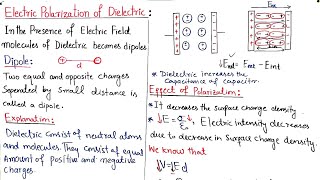 Electric Polarization of Dielectric:
In the Presence of Electric Field
molecules of Dielectric becomes dipoles
Dipole:
+ -
d
Two equal and opposite charges
Seperated by Small distance is
called a dipole.
Explanation:
Dielectric Consist of neutral atoms
and molecules. They Consist of equal
amount of positive and negative
charges
Eext
↓Enet = Eext - Eint
* Dielectric increases the
Capacitance of Capacitor.
Effect of Polarization:
* It decreases the Surface charge density.
* ↓E = σ/ε₀ ↓, Electric intensity decreases
due to decrease in Surface charge density.
We know that
↓V = ↓E d